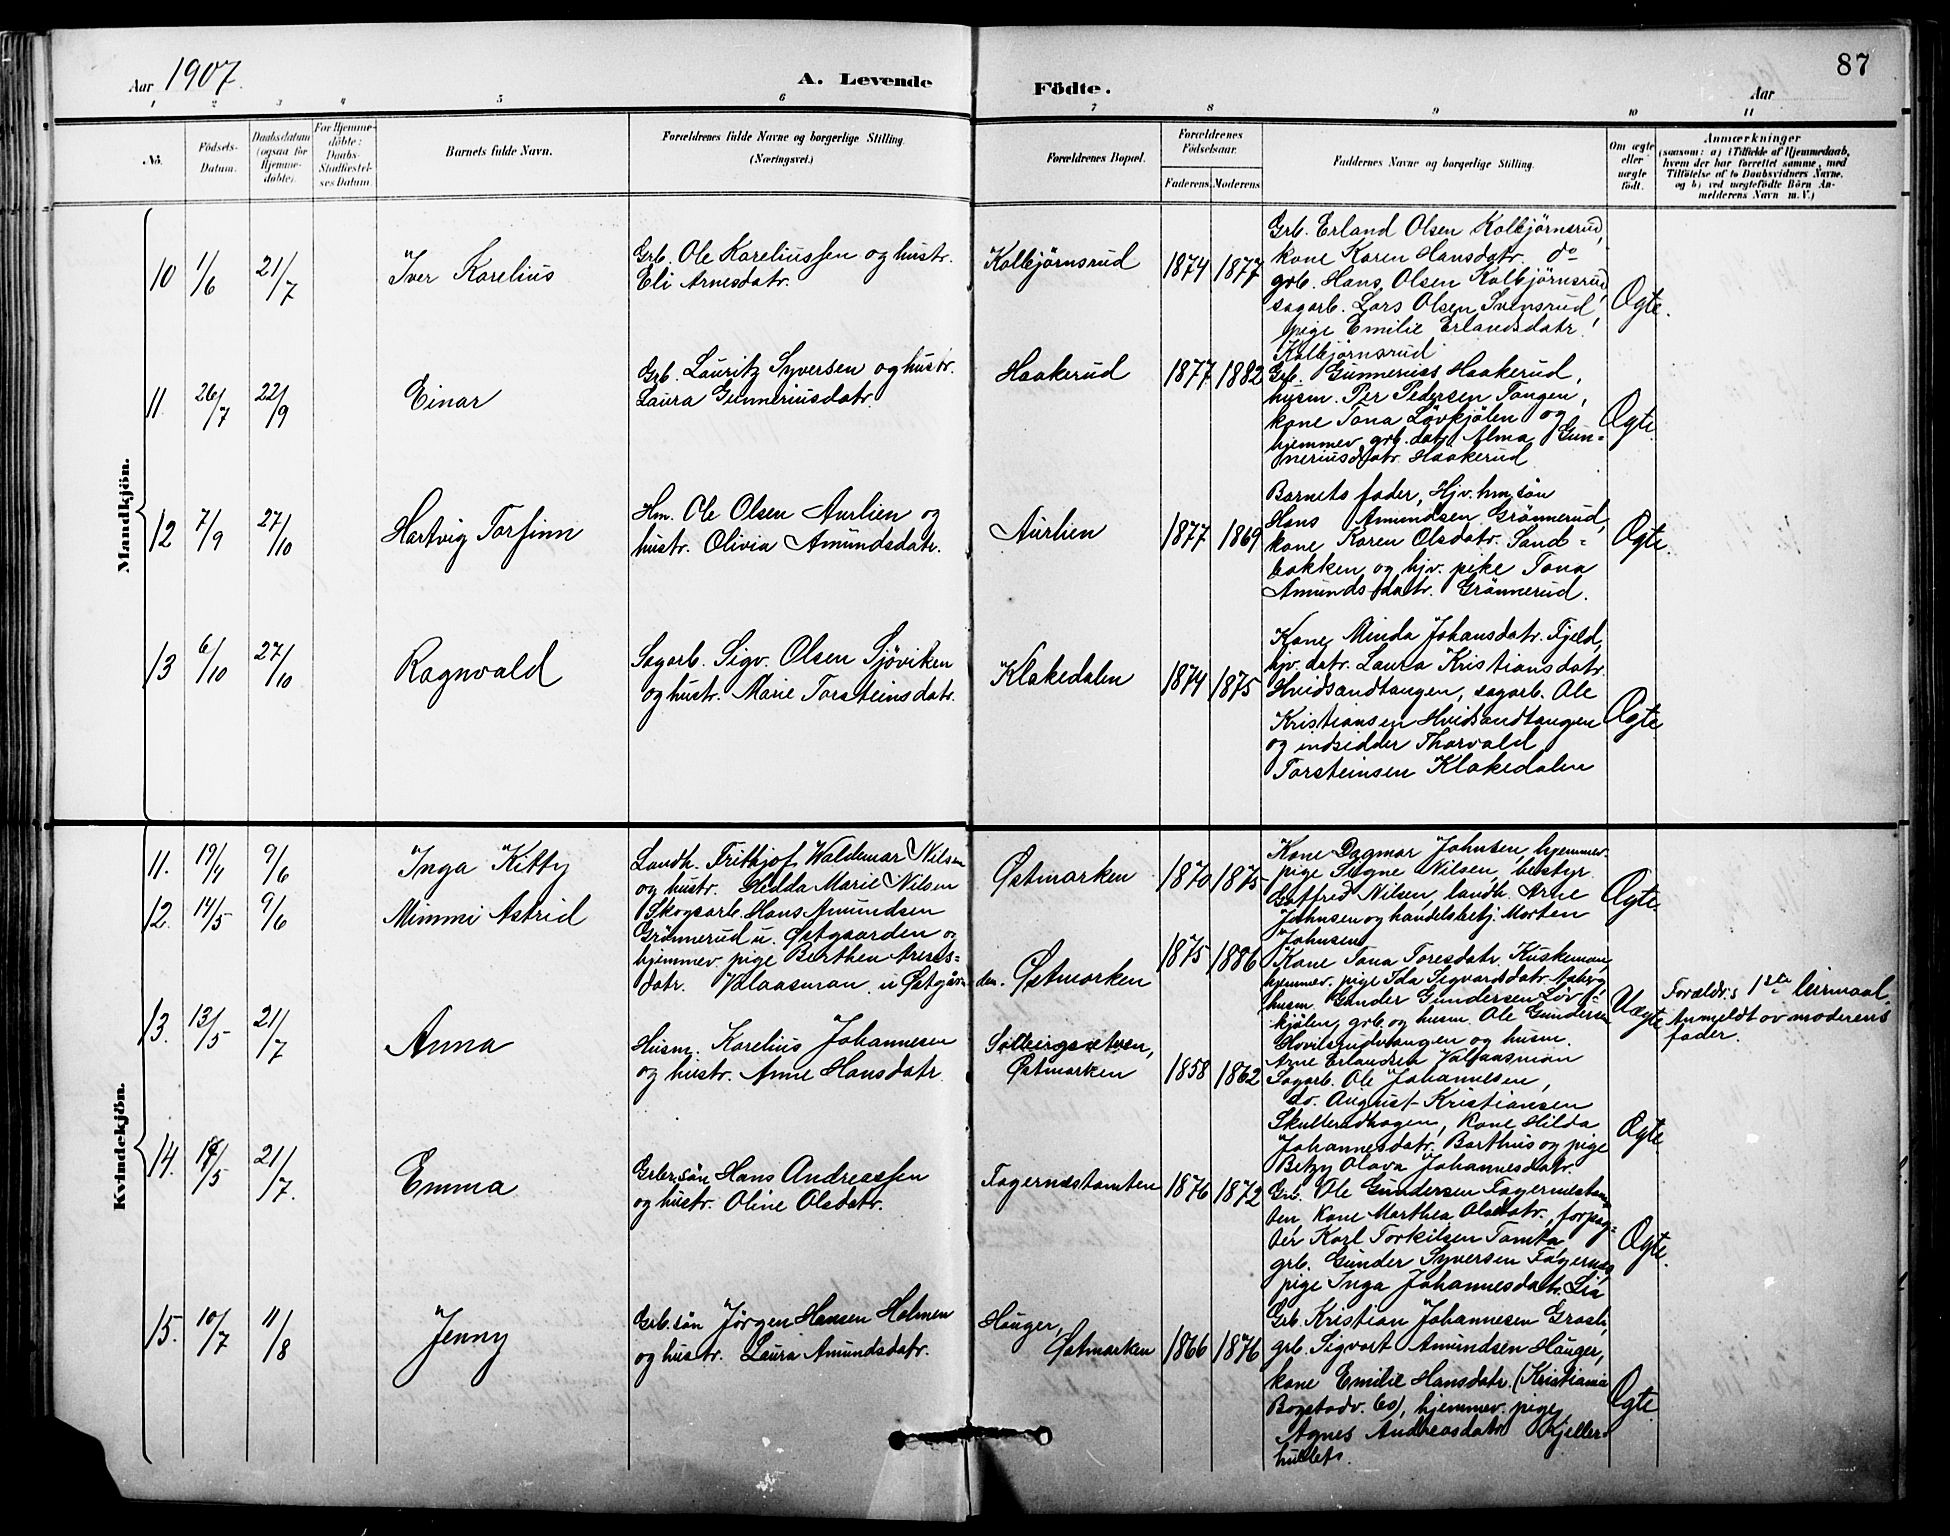 Aar 1907.
A. Levende
Födte.
Aar
87
1 2 3 4 5 6 7 8 9 10 11
No.
Födsels-
Datum.
Daabsdatum
(ogsaa for
Hjemme-
döbte).
For Hjemme-
döbte:
Daabs-
Stadfæstel-
ses Datum.
Barnets fulde Navn.
Forældrenes fulde Navne og borgerlige Stilling.
(Næringsvei.)
Forældrenes Bopæl.
Forældrenes
Födselsaar.
Faderens Moderens
Faddernes Navne og borgerlige Stilling.
Om ægte
eller
uægte
födt.
Anmærkninger
(saasom: a) i Tilfælde af Hjemmedaab,
hvem der har forrettet samme, med
Tilföielse af to Daabsvidners Navne.
og b) ved uægtefödte Börn An-
melderens Navn m. V.)
Mandkjön.
10 1/6 21/7
Iver Korelius
Grb. Ole Koreliussen og hustr.
Eli Arnesdatr.
Kolbjörnsrud
1874 1877
Grb. Erland Olsen Kolbjörnsrud,
kone Karen Hansdatr. do
grb. Hans Olsen Kolbjörnsrud,
sagarb. Lars Olsen Svensrud,
pige Emilie Erlandsdatr.
Kolbjörnsrud
Ægte.
11. 26/7 22/9
Einar
Grb. Lauritz Syversen og hustr.
Laura Gunneriusdatr.
Haakerud
1877 1882
Grb. Gunnerius Haakerud,
husm. Per Pedersen Tangen,
kone Tona Lövkjölen og
hjemmev. grb. datr. Alma Gun-
neriusdatr. Haakerud
Ægte.
12 7/9 27/10
Hartvig Torfinn
Hm. Ole Olsen Aurlien og
hustr. Olivia Amundsdatr.
Aurlien
1877 1869
Barnets fader, Hjv. hm. sön
Hans Amundsen Grönnerud,
kone Karen Olsdatr. Sand-
bakken og hjv. pike Tona
Amundsdatr. Grönnerud.
Ægte.
13 6/10 27/10
Ragnvald
Sagarb. Sigv. Olsen Sjöviken
og hustr. Marie Torsteinsdatr.
Klakedalen
1874 1875
Kone Minda Johansdatr. Fjeld,
hjv. datr. Laura Kristiansdatr.
Hvidsandtangen, sagarb. Ole
Kristiansen Hvidsandtangen
og indsidder Thorvald
Torsteinsen Klakedalen
Ægte
Kvindekjön.
11. 19/4 9/6
Inga Kitty
Landh. Frithjof Waldemar Nilsen
og hustr. Hedda Marie Nilsen
Østmarken
1870 1875
Kone Dagmar Johnsen, hjemmev.
pige Signe Nilsen, bestyr.
Gotfred Nilsen, landh. Arne
Johnsen og handelsbetj. Morten
Johnsen
Ægte.
12. 14/5 9/6
Mimmi Astrid
Skogsarb. Hans Amundsen
Grönnerud u. Østgaarden og
hjemmev. pige Berthea Arnes-
datr. Valaasman u Østgår-
den. Østmarken
1875 1886
Kone Tona Toresdatr. Kuskeman,
hjemmev. pige Ida Sigvardsdatr.
husm. Gunder Gundersen Löv-
kjölen, grb. og husm. Ole Gundersen
og husm.
Arne Erlandsen Valaasman
Uægte
Forældr:s 1ste leirmaal.
Anmeldt av moderens
fader.
13. 13/5 21/7
Anna
Husm. Korelius Johannesen
og hustr. Anne Hansdatr.
Østmarken
1858 1862
Sagarb. Ole Johannesen,
do. August Kristiansen
Skulterudhagen, kone Hilda
Johannesdatr. Barthus og pige
Betzy Olava Johannesdatr.
Ægte.
14. 18/5 21/7.
Emma
Grbr. sön Hans Andreassen
og hustr. Oline Olsdatr.
Fagernæstomten
1876 1872
Grb. Ole Gundersen Fagernestom-
ten, kone Marthea Olsdatr., forpag-
ter Karl Torkilsen Tomta
grb. Gunder Syversen Fagernæs
pige Inga Johannesdatr. Lia
Ægte.
15. 10/7 11/8
Jenny
Grb. sön Jörgen Hansen Holmen
og hustr. Laura Amundsdatr.
Hauger,
Østmarken
1866 1876
Grb. Kristian Johannesen Grasli,
grb. Sigvart Amundsen Hauger,
kone Emilie Hansdatr. (Kristiania
Bogstadv. 60), hjemmev. pige
Agnes Andreasdatr. Kjeller-
hullets.
Ægte.